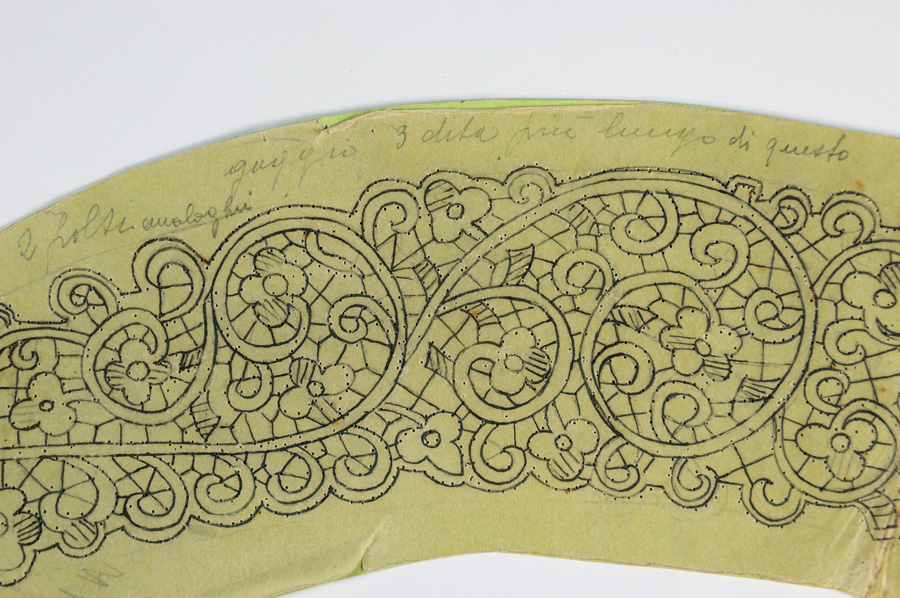 3 dita più lungo di questo
2 volte analoghi